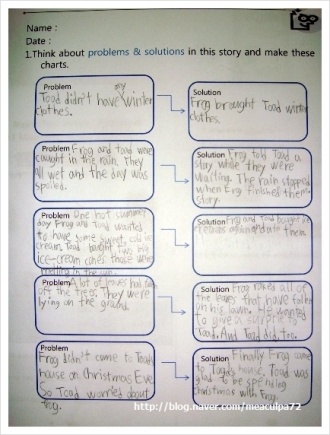 Name :
Date :
1.Think about problems & solutions in this story and make these
charts.
Problem
Toad didn't have any winter
clothes.
Solution
Frog brought Toad winter
clothes.
Problem Frog and toad were
caught in the rain. They
all wet and the day was
spoiled.
Solution Frog told Toad a
story while they were
waiting. The rain stopped
when Frog finished the
story.
Problem One hot summer
day Frog and Toad wanted
to have some sweet, cold ice
cream. Toad bought two big
ice-cream cones those were
melting in the sun.
Solution Frog and Toad bought ice
creams again and ate them.
Problem A lot of leaves had fallen
off the trees. They were
lying on the ground.
Solution Frog raked all of
the leaves that have fallen
on his lawn. He wanted
to give a
Toad. And Toad did, too.
Problem
Frog didn't come to Toad's
house on Christmas Eve.
So Toad worried about
frog.
Solution Finally Frog came
to Toad's house. Toad was
glad to be spending
christmas with Frog.
http://blog.naver.com/meaculpa72